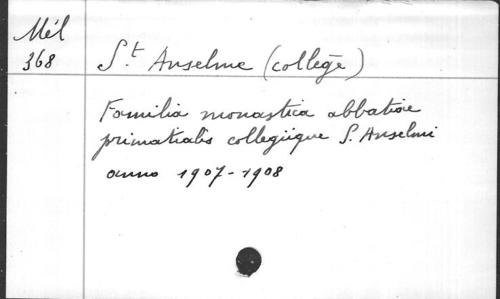 Mél
368
St Anselme (collège)
Familia monastica abbatiae
primatialis collegiique S. Anselmi
anno 1907-1908